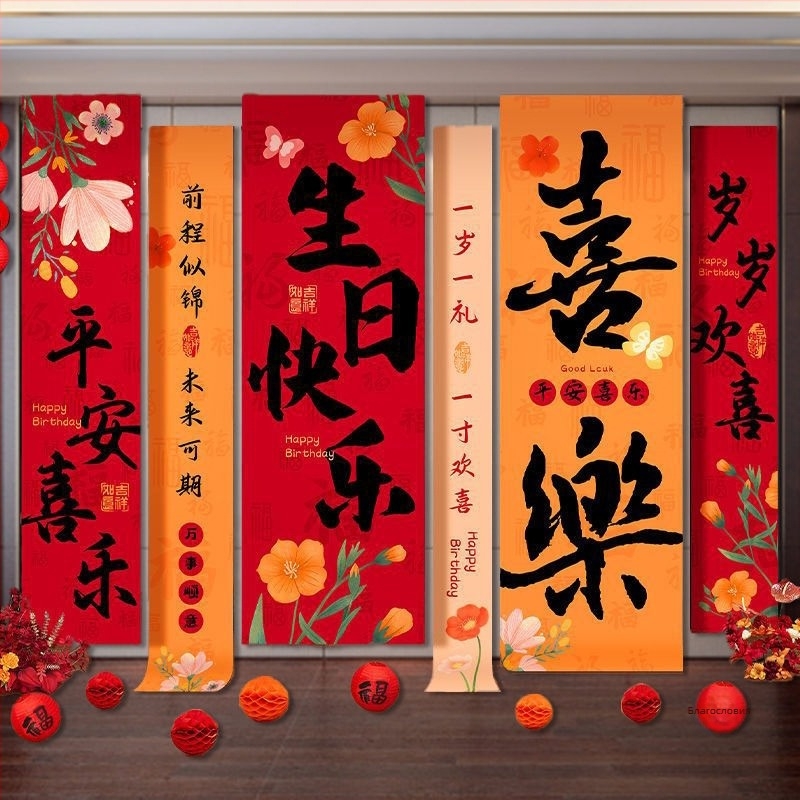 平安喜乐
Happy
Birthday
吉祥
如意
前程似锦
未来可期
万事顺意
生日快乐
吉祥
如意
Happy
Birthday
一岁一礼
一寸欢喜
Happy
Birthday
喜樂
Good Lcuk
平安喜乐
岁岁欢喜
Happy
Birthday
福
福
Благослови